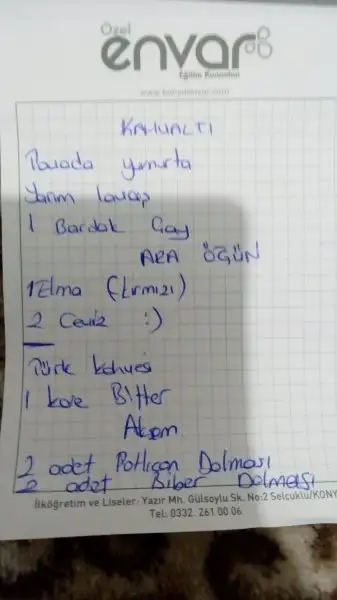 Özel
envar
Eğitim Kurumları
KAHVALTI
Tavada yumurta
Yarım lavaş
1 Bardak Çay
ARA ÖĞÜN
1 Elma (kırmızı)
2 Ceviz :)
Türk kahvesi
1 kare Bitter
Akşam
2 adet Patlıcan Dolması
2 adet Biber Dolması
İlköğretim ve Liseler: Yazır Mh. Gülsoylu Sk. No:2 Selçuklu/KONY
Tel: 0332 261 00 06